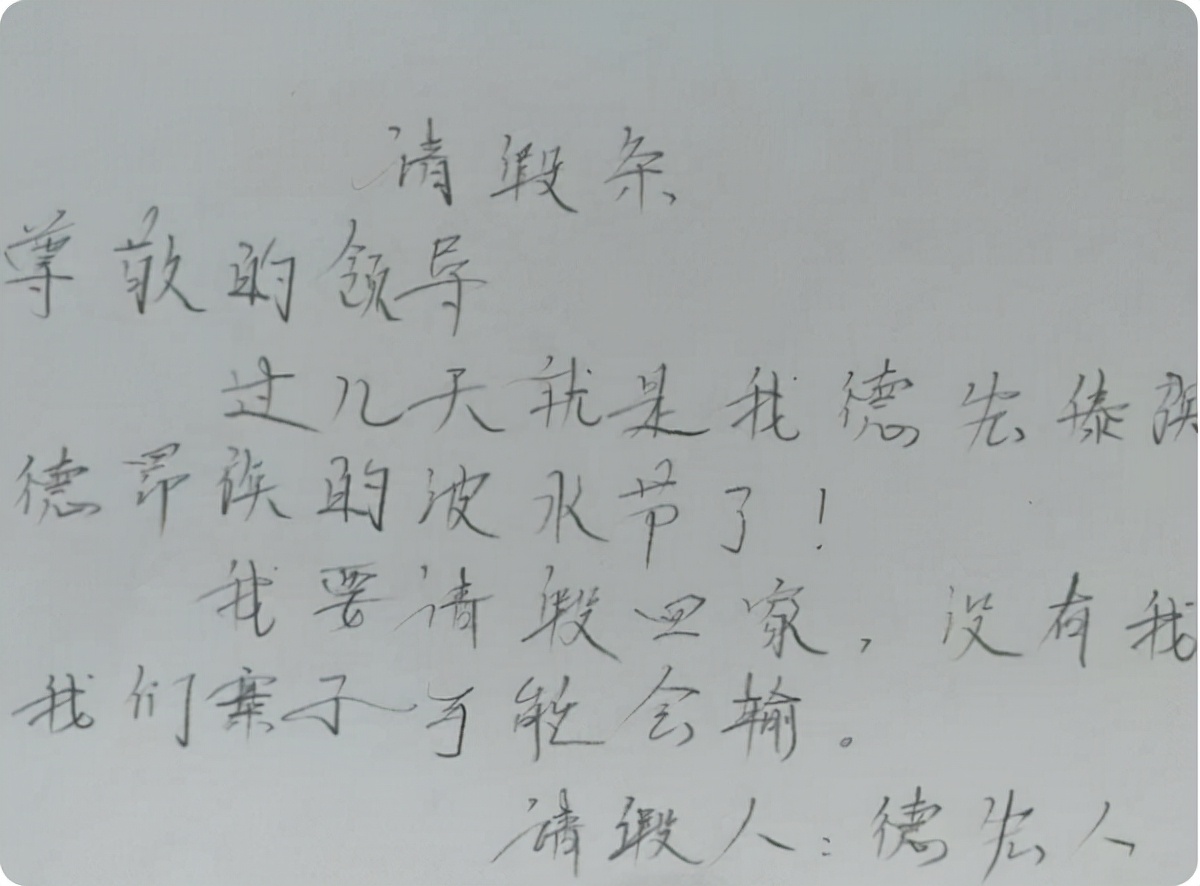 请假条
尊敬的领导
过几天就是我德宏傣族
德昂族的泼水节了！
我要请假回家，没有我
我们寨子可能会输。
请假人：德宏人